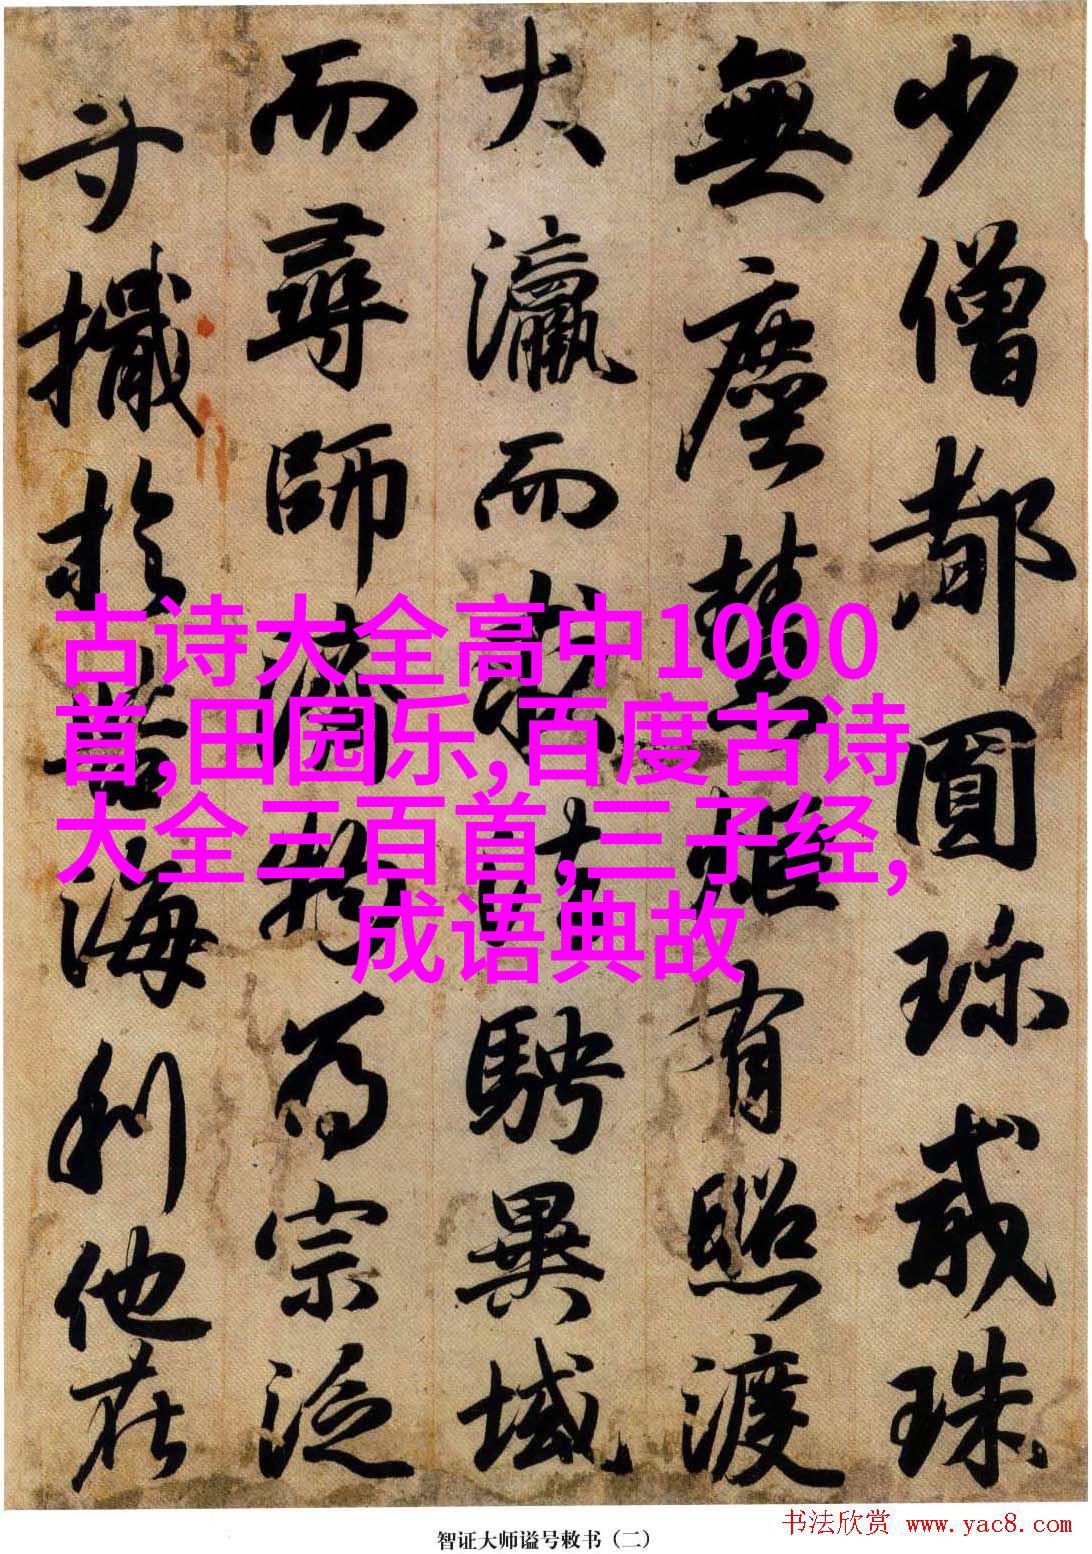 少僧都圓珎戒珠
無塵慧炬有照渡
大瀛而騁異域
而尋師濟物為宗泛
寸檝於苦海利他在
古诗大全高中1000
首,田园乐,百度古诗
大全三百首,三子经,
成语典故
智证大师谥号敕书（二）
书法欣赏 www.yac8.com